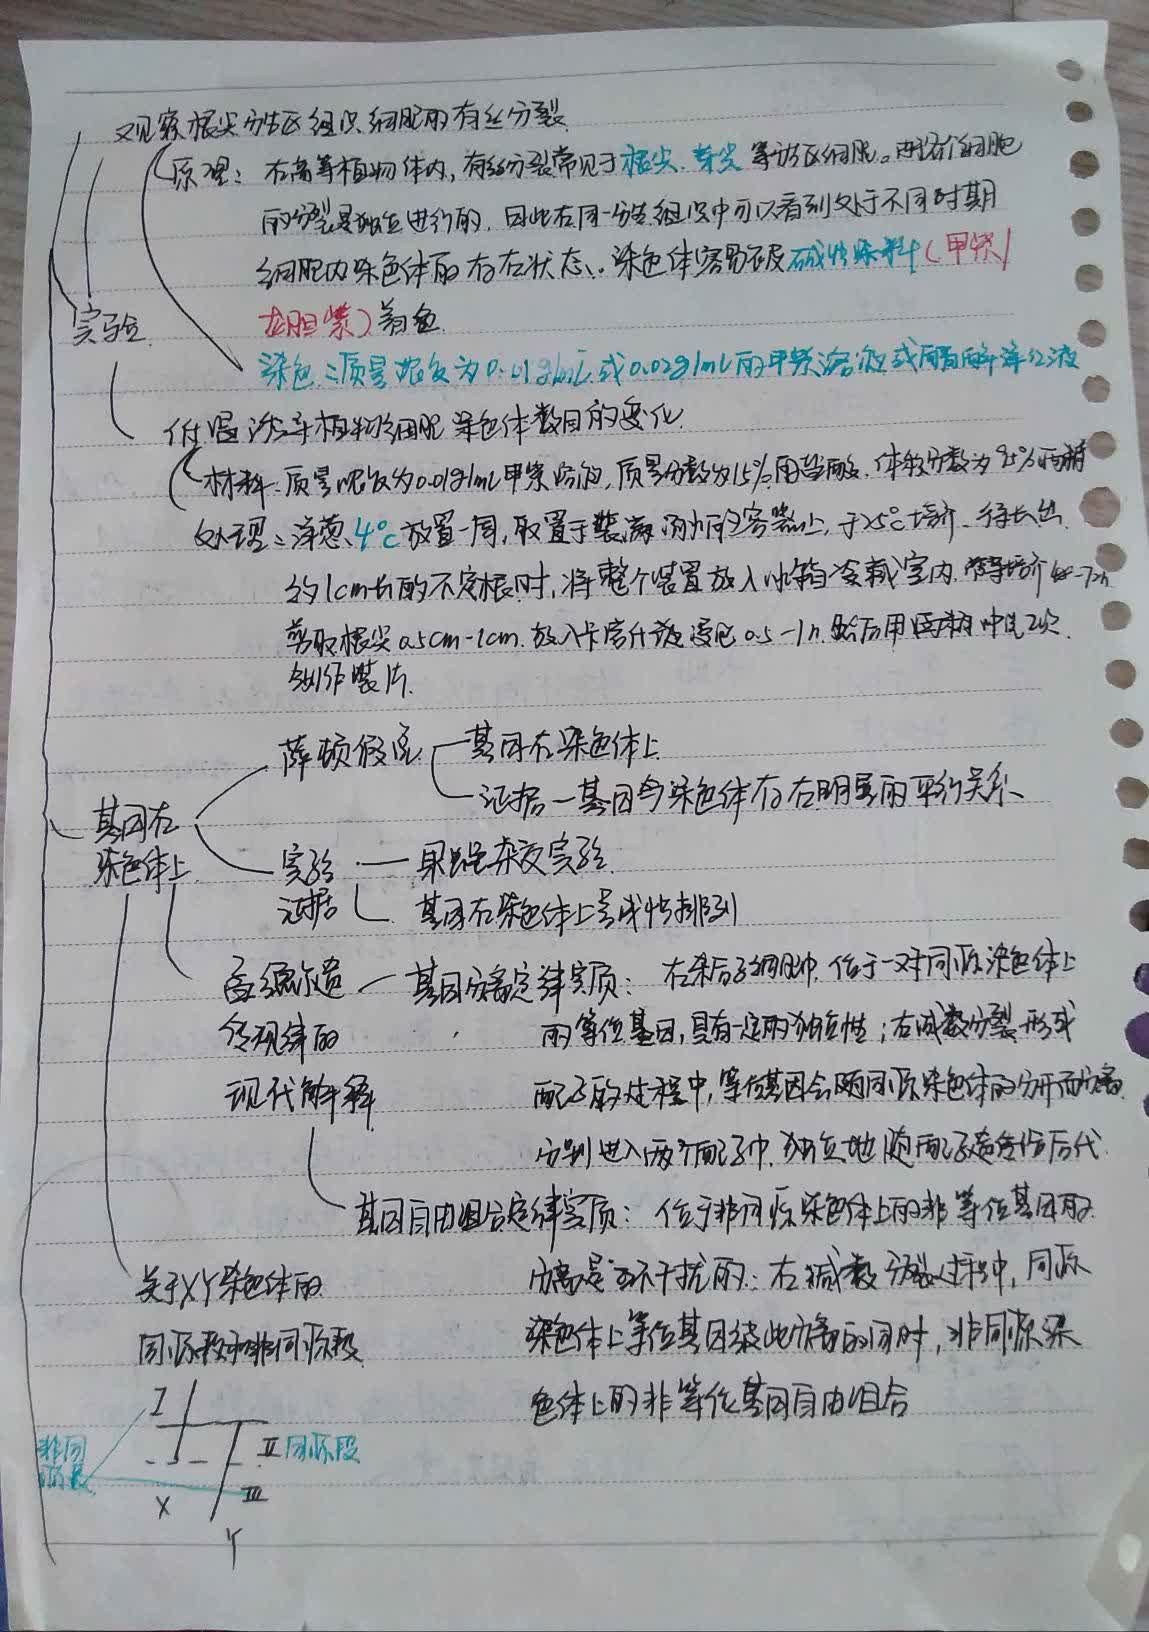 观察根尖分生区组织细胞的有丝分裂
原理：在高等植物体内，有丝分裂常见于根尖、芽尖等分生区细胞。由于各个细胞
的分裂是独立进行的，因此在同一分生组织中可以看到处于不同时期
细胞内染色体的存在状态。染色体容易被碱性染料（甲紫/
龙胆紫）着色
实验
染色：质量浓度为0.01g/mL或0.02g/mL的甲紫溶液或醋酸洋红液
低温诱导植物细胞染色体数目的变化
材料：质量浓度为0.01g/mL甲紫溶液，质量分数为15%的盐酸、体积分数为95%酒精
处理：洋葱、4℃放置一周，取置于装满清水的容器上，于25℃培养 待长出
约1cm长的不定根时，将整个装置放入冰箱冷藏室内，培养48-72h
剪取根尖0.5cm-1cm，放入卡诺氏液浸泡0.5-1h，然后用酒精冲洗2次
制作装片
萨顿假说 基因在染色体上
证据—基因与染色体存在明显的平行关系
基因在
染色体上
实验 — 果蝇杂交实验
证据 基因在染色体上呈线性排列
孟德尔遗 — 基因分离定律实质：在杂合子细胞中，位于一对同源染色体上
传规律的 的等位基因，具有一定的独立性；在减数分裂形成
现代解释 配子的过程中，等位基因会随同源染色体的分开而分离，
分别进入两个配子中，独立地随配子遗传给后代
基因自由组合定律实质：位于非同源染色体上的非等位基因的
关于XY染色体的 分离是互不干扰的；在减数分裂过程中，同源
同源段和非同源段 染色体上等位基因彼此分离的同时，非同源染
色体上的非等位基因自由组合
I
非同
源段
II 同源段
X III
Y